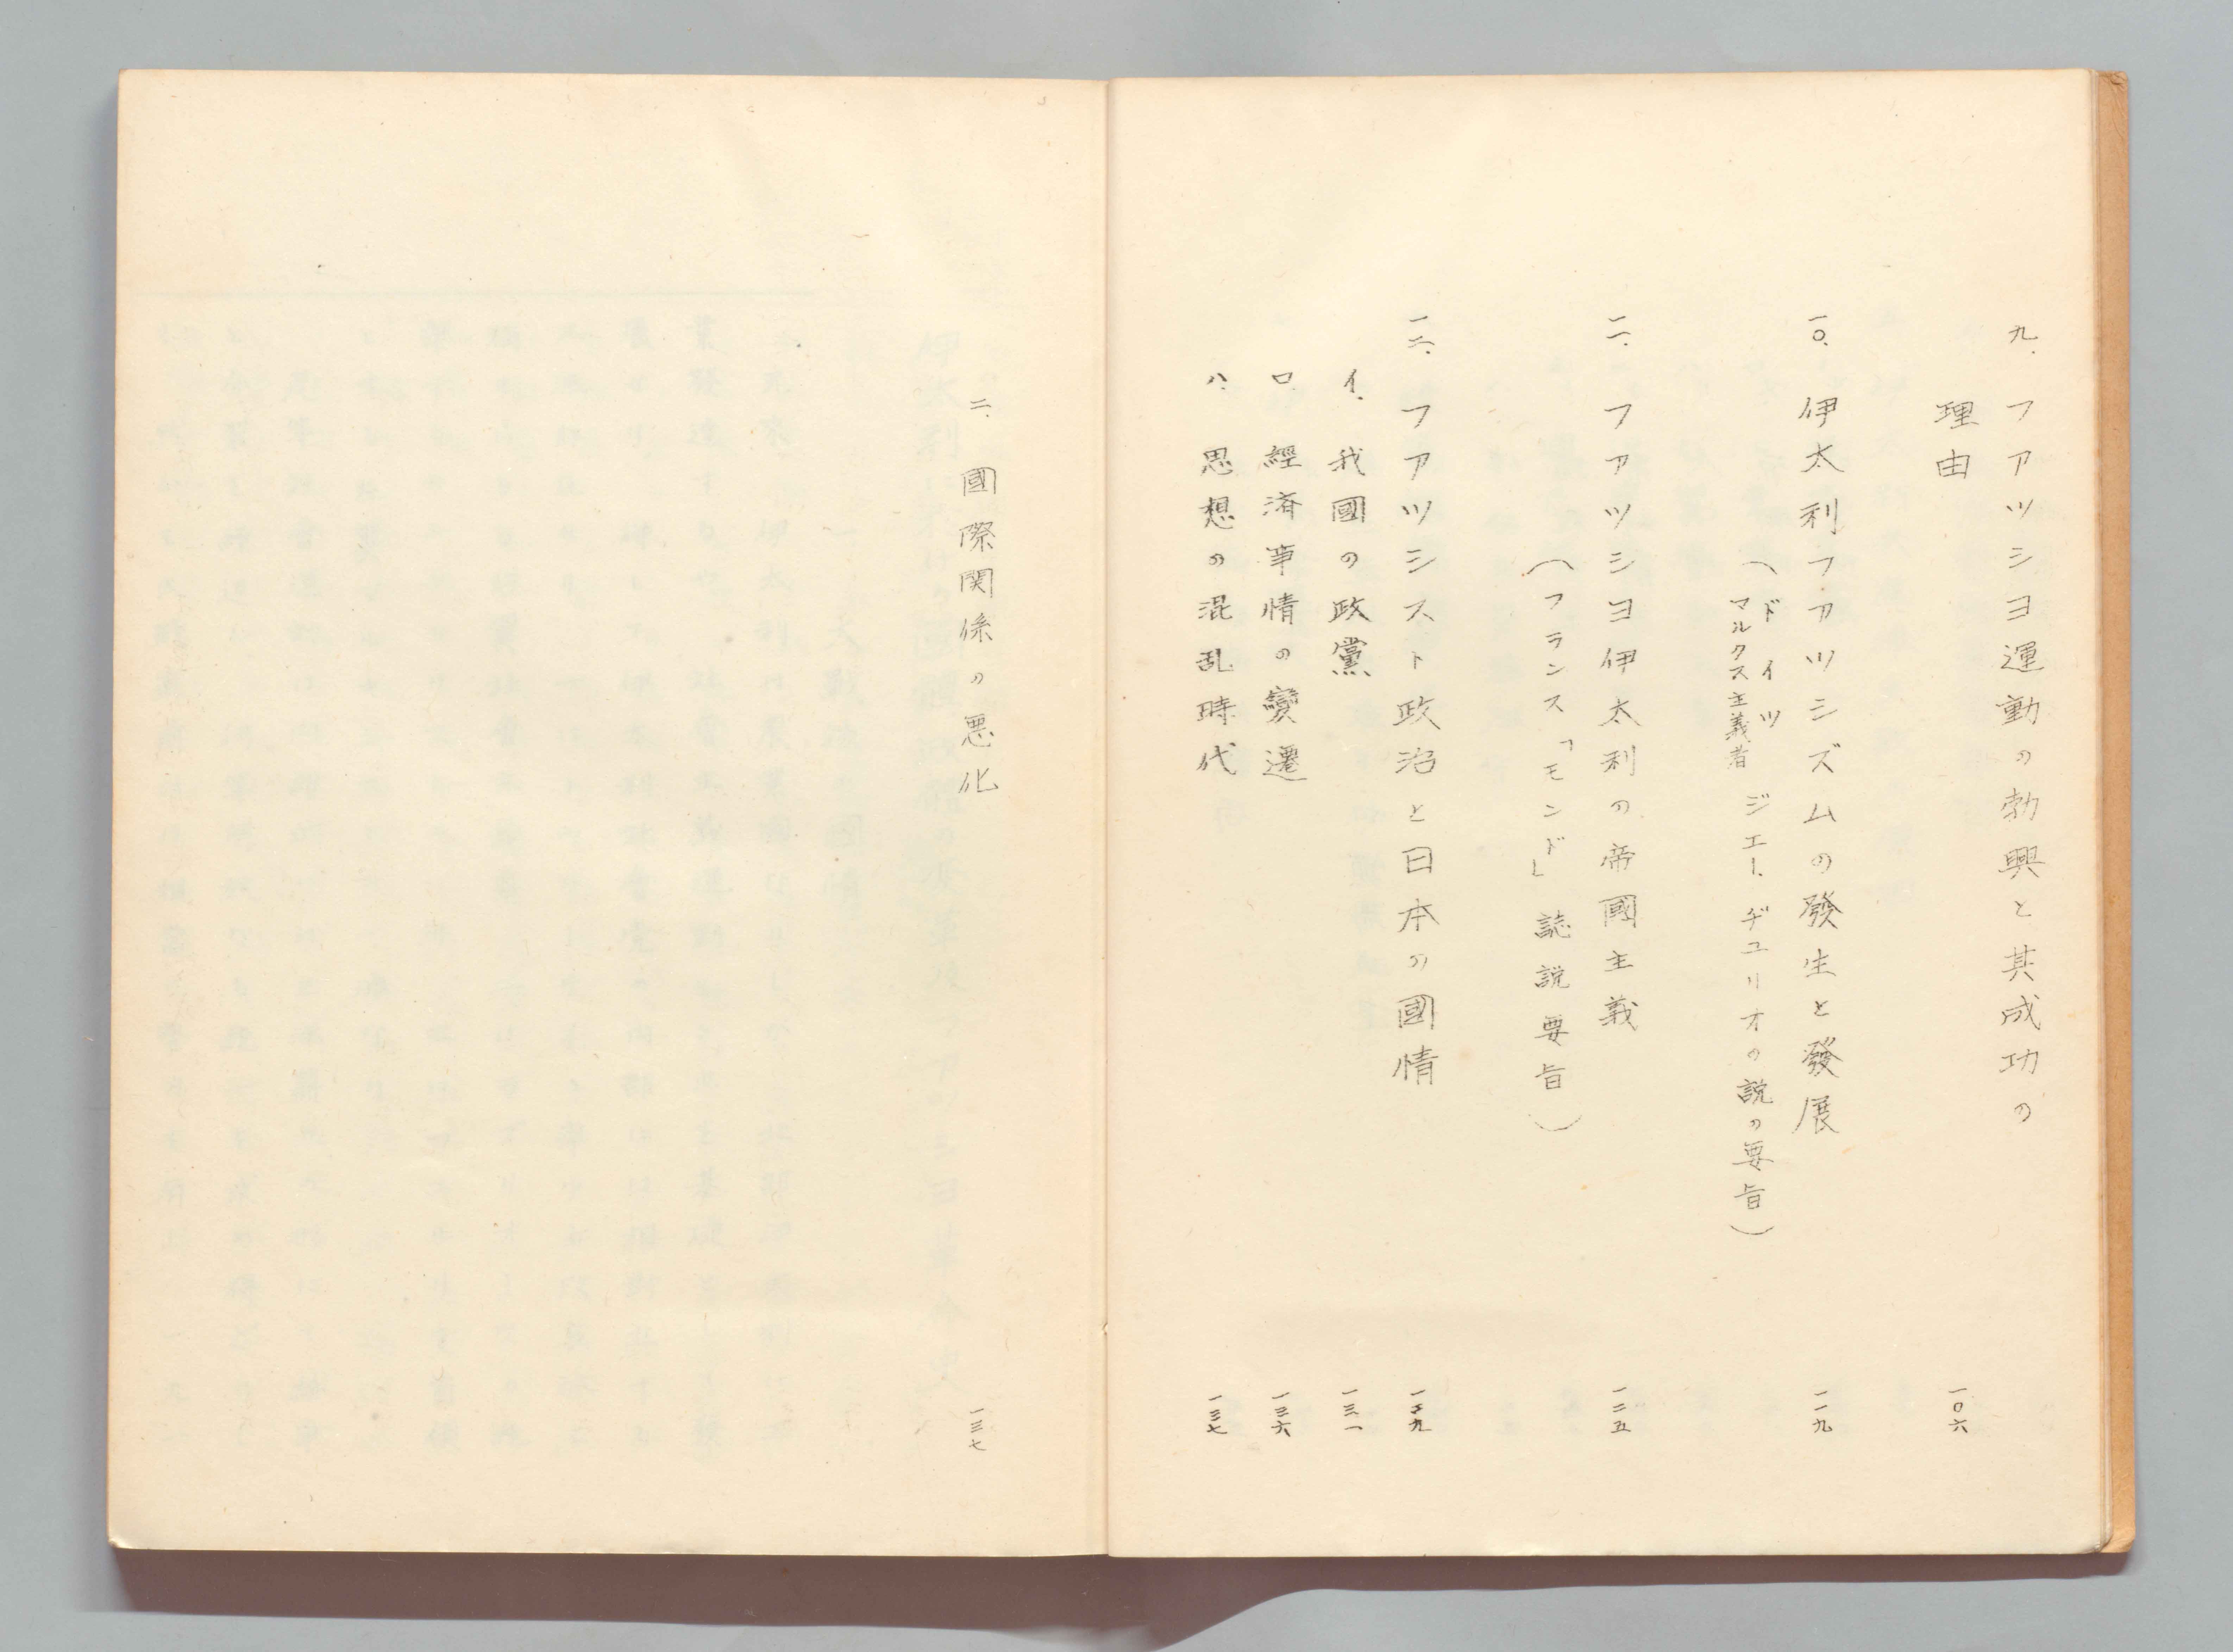 九.フアツシヨ運動の勃興と其成功の
理由 一〇六
一〇.伊太利フアツシズムの發生と發展 一一九
(ドイツ
マルクス主義者 ジエー、ヂユリオの説の要旨)
一一.フアツシヨ伊太利の帝國主義 一二五
(フランス「モンド」誌説要旨)
一二.フアツシスト政治と日本の國情 一二九
イ.我國の政黨 一三一
ロ.經済事情の變遷 一三六
ハ.思想の混乱時代 一三七
ニ.國際関係の悪化 一三七